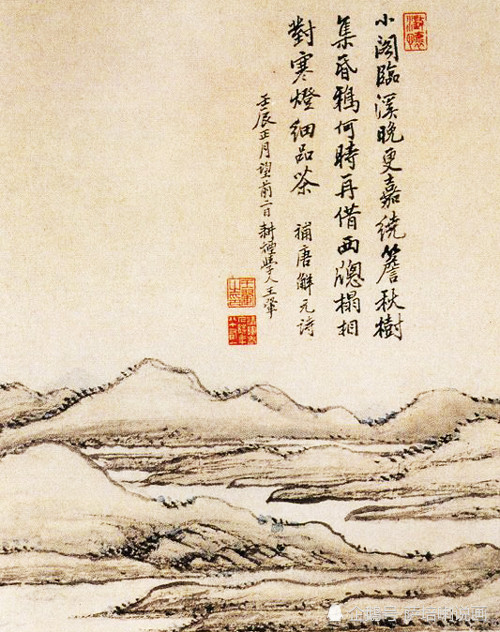 小閣臨溪晚更嘉繞簷秋樹
集昏鴉何時再借西牕榻相
對寒燈細品茶 補唐解元詩
壬辰正月望前二日耕煙學人王翬